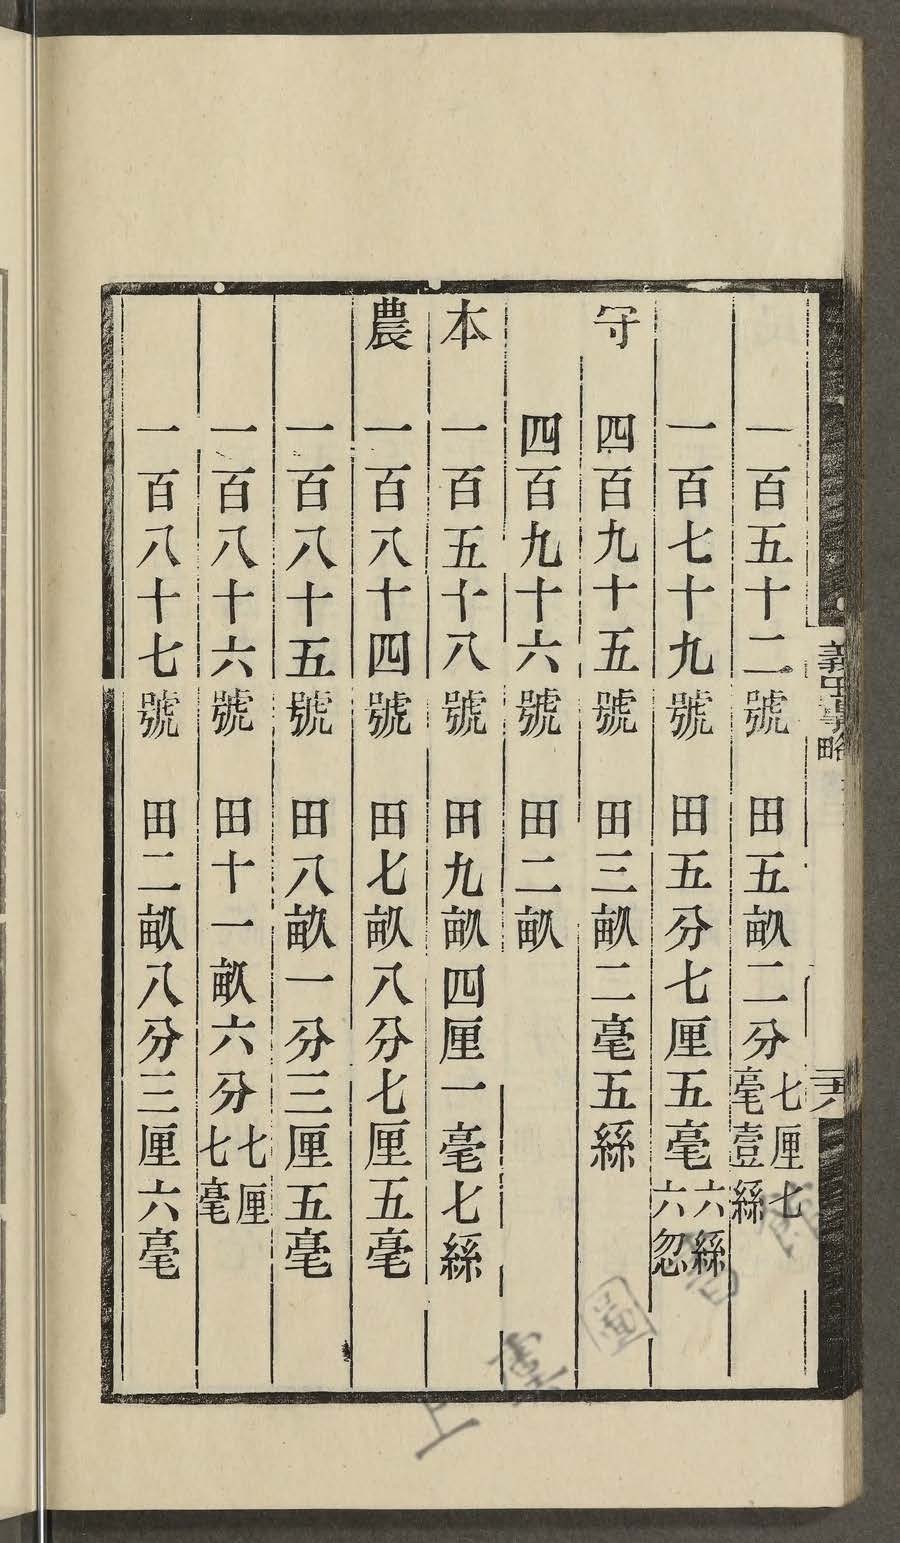 一百五十二號 田五畝二分七厘七毫壹絲
一百七十九號 田五分七厘五毫六絲六忽
守 四百九十五號 田三畝二毫五絲
四百九十六號 田二畝
本 一百五十八號 田九畝四厘一毫七絲
農 一百八十四號 田七畝八分七厘五毫
一百八十五號 田八畝一分三厘五毫
一百八十六號 田十一畝六分七厘七毫
一百八十七號 田二畝八分三厘六毫
上虞圖書館